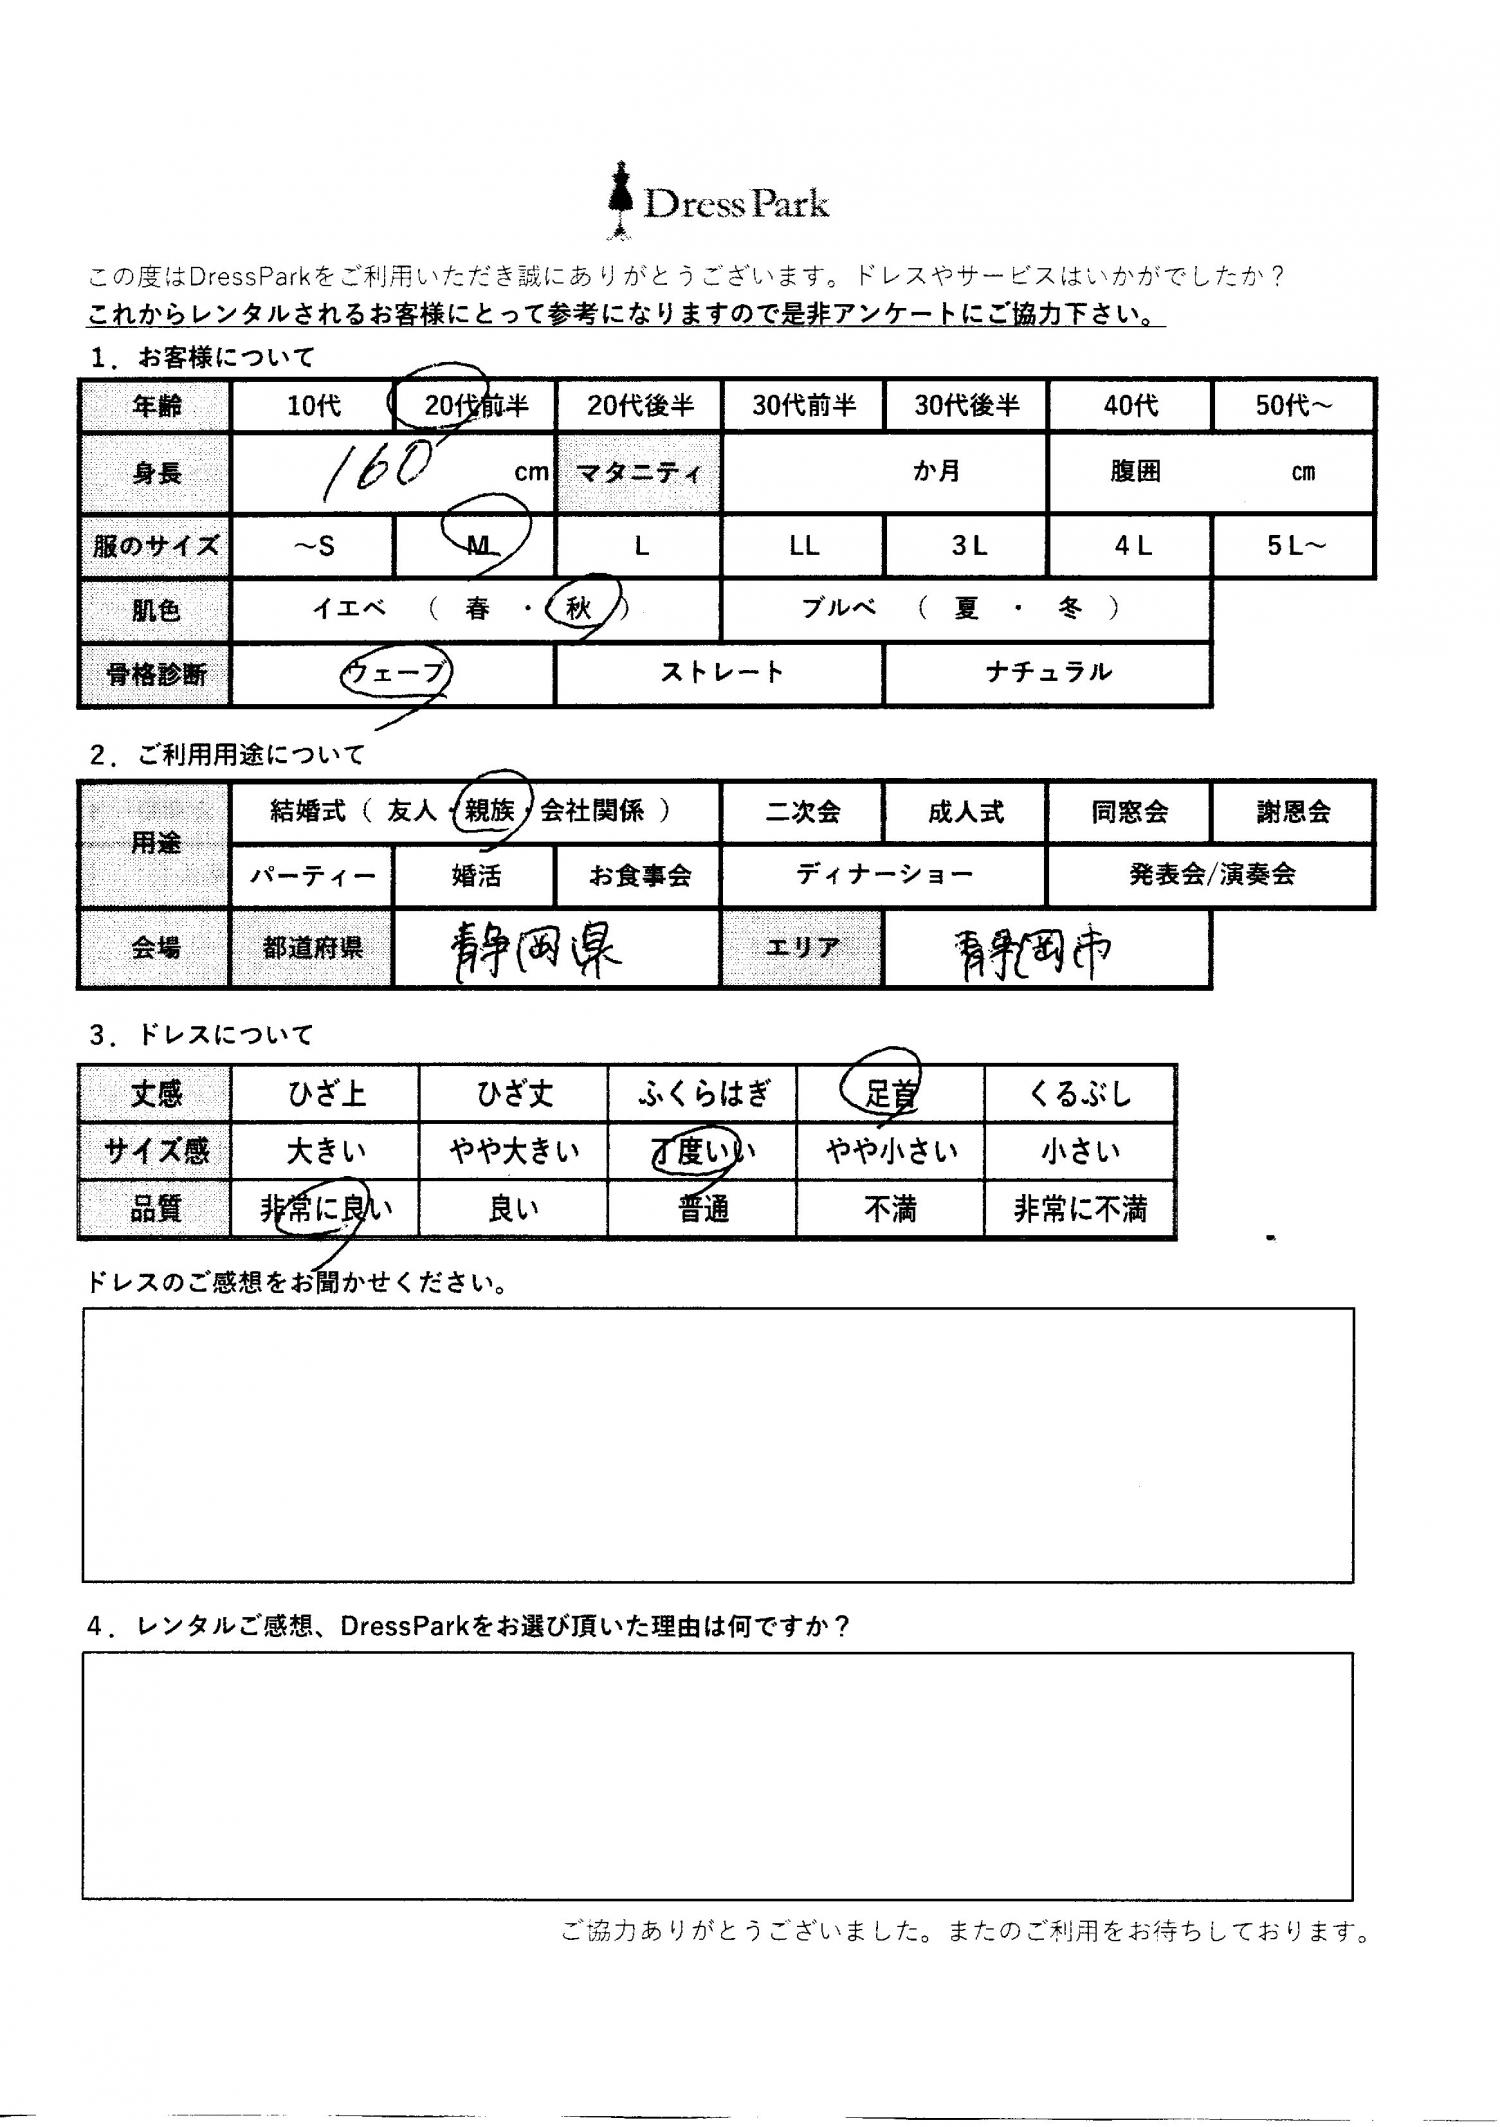 Dress Park
この度はDressParkをご利用いただき誠にありがとうございます。ドレスやサービスはいかがでしたか？
これからレンタルされるお客様にとって参考になりますので是非アンケートにご協力下さい。
1．お客様について
年齢 10代 20代前半 20代後半 30代前半 30代後半 40代 50代～
身長 160 cm マタニティ か月 腹囲 cm
服のサイズ ～S M L LL 3L 4L 5L～
肌色 イエベ （ 春 ・ 秋 ） ブルベ （ 夏 ・ 冬 ）
骨格診断 ウェーブ ストレート ナチュラル
2．ご利用用途について
用途 結婚式（ 友人・親族・会社関係 ） 二次会 成人式 同窓会 謝恩会
パーティー 婚活 お食事会 ディナーショー 発表会/演奏会
会場 都道府県 静岡県 エリア 静岡市
3．ドレスについて
丈感 ひざ上 ひざ丈 ふくらはぎ 足首 くるぶし
サイズ感 大きい やや大きい 丁度いい やや小さい 小さい
品質 非常に良い 良い 普通 不満 非常に不満
ドレスのご感想をお聞かせください。
4．レンタルご感想、DressParkをお選び頂いた理由は何ですか？
ご協力ありがとうございました。またのご利用をお待ちしております。